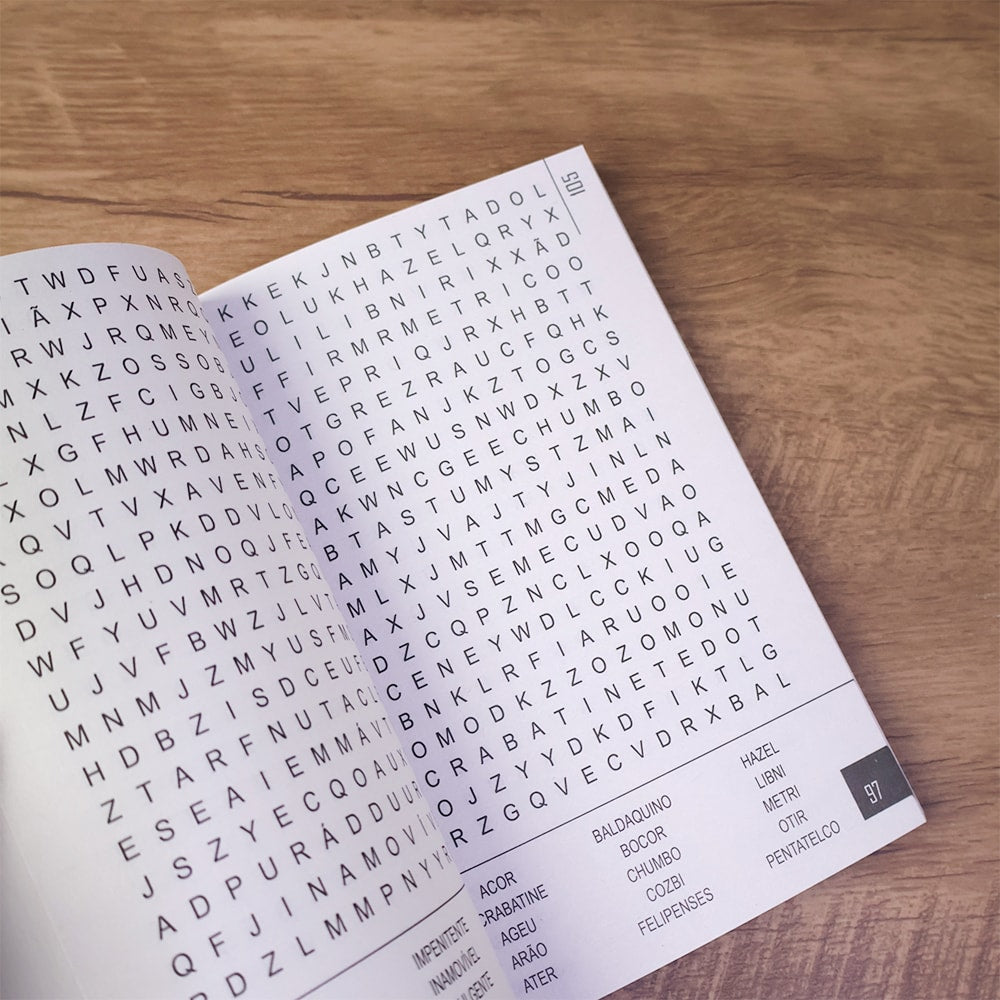 T W D F U A S
I Ã X P X N R Q
R W J R Q M E Y
M X K Z O S S O B
N L Z F C I G B J
X G F H U M N E I
X O L M W R D A H S
Q V T V X A V E N F
S O Q L P K D D V L O
D V J H D N O Q J F E
W F Y U V M R T Z G Q
U J V F B W Z J L V T
M N M J Z M Y U S F M
H D B Z I S D C E U F
Z T A R F N U T A C L
E S E A I E M M Á V T
J S Z Y E C Q O A U X
A D P U R Á D D U U
Q F J I N A M O V Í
D Z L M M P N Y Y
IMPENITENTE
INAMOVÍVEL
105
K K E K J N B T Y T A D O L
E O L U K H A Z E L Q R Y X
U L I L I B N I R I X X Ã D
F F I R M R M E T R I C O O
T V E P R I Q J R X H B T T
O T G R E Z R A U C F Q H K
A P O F A N J K Z T O G C S
Q C E E W U S N W D X Z X V
A K W N C G E E C H U M B O
B T A S T U M Y S T Z M A I
A M Y J V A J T Y J I N L N
M L X J M T T M G C M E D A
A X J V S E M E C U D V A O
D Z C Q P Z N C L X O O Q A
C E N E Y W D L C C K I U G
B N K L R F I A R U O O I E
O M O D K Z Z O Z O M O N U
C R A B A T I N E T E D O T
O J Z Y Y D K D F I K T L G
R Z G Q V E C V D R X B A L
ACOR
CRABATINE
AGEU
ARÃO
ATER
BALDAQUINO
BOCOR
CHUMBO
COZBI
FELIPENSES
HAZEL
LIBNI
METRI
OTIR
PENTATELCO
97